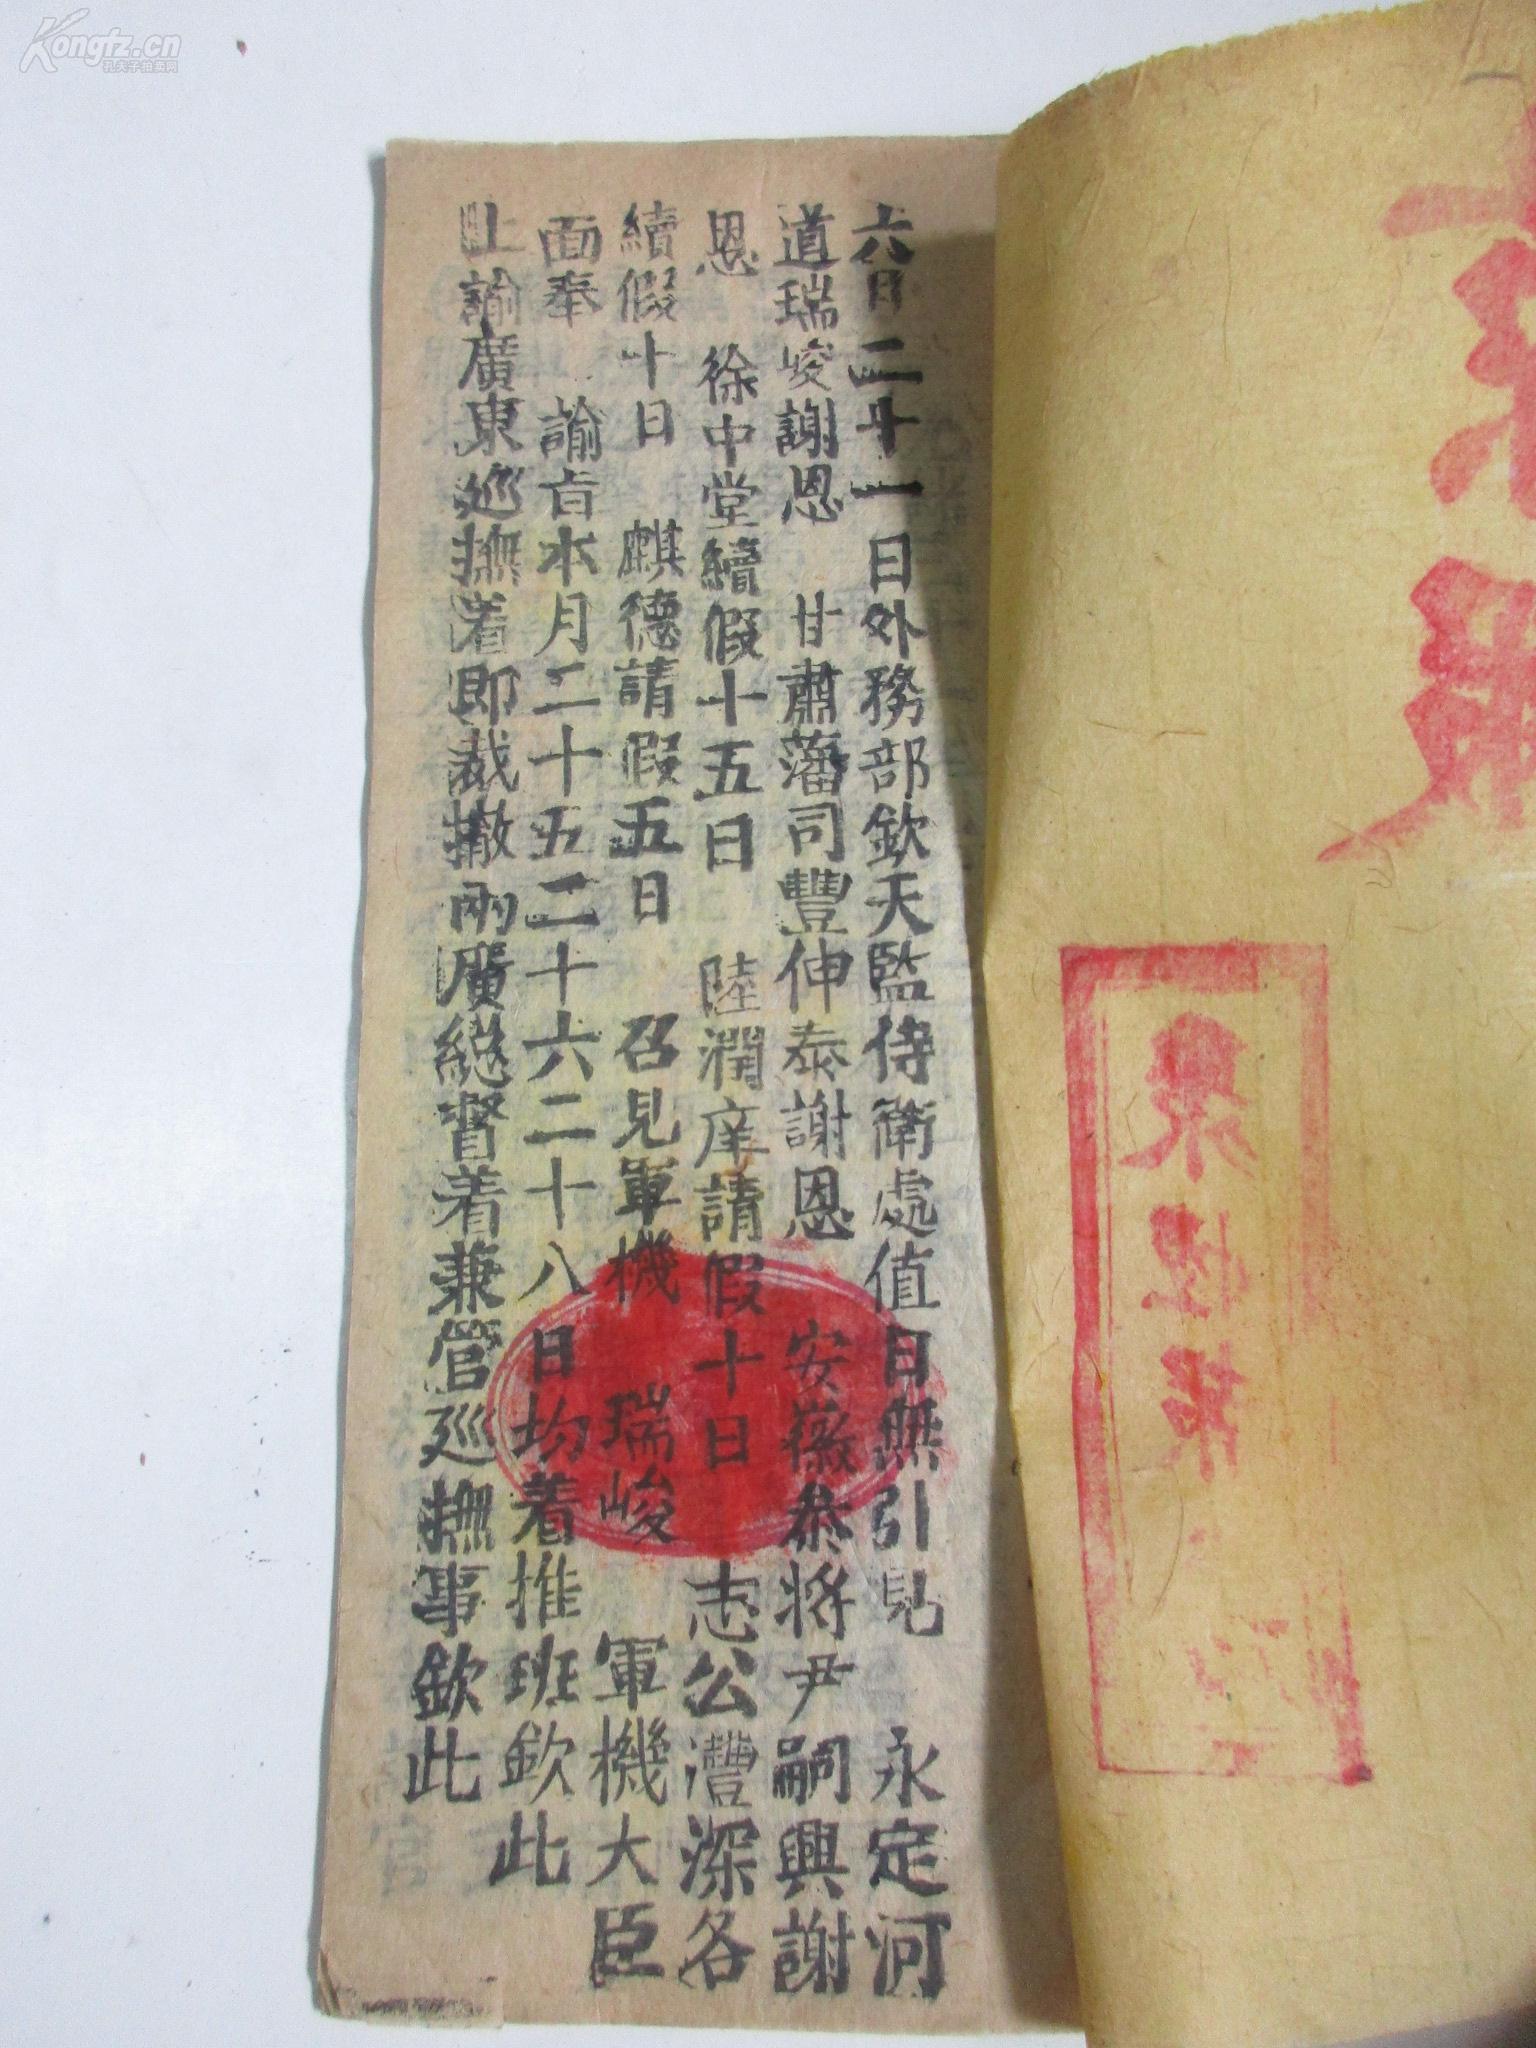 六月二十一日外務部欽天監侍衛處值日無引見　永定河
道瑞峻謝恩　甘肅藩司豐伸泰謝恩　安徽叅將尹嗣興謝
恩　徐中堂續假十五日　陸潤庠請假十日　志公灃深各
續假十日　麒德請假五日　召見軍機　瑞峻　軍機大臣
面奉　諭旨本月二十五二十六二十八日均着推班欽此
上諭廣東廵撫着即裁撤兩廣總督着兼管廵撫事欽此
Kongfz.cn
孔夫子拍卖网